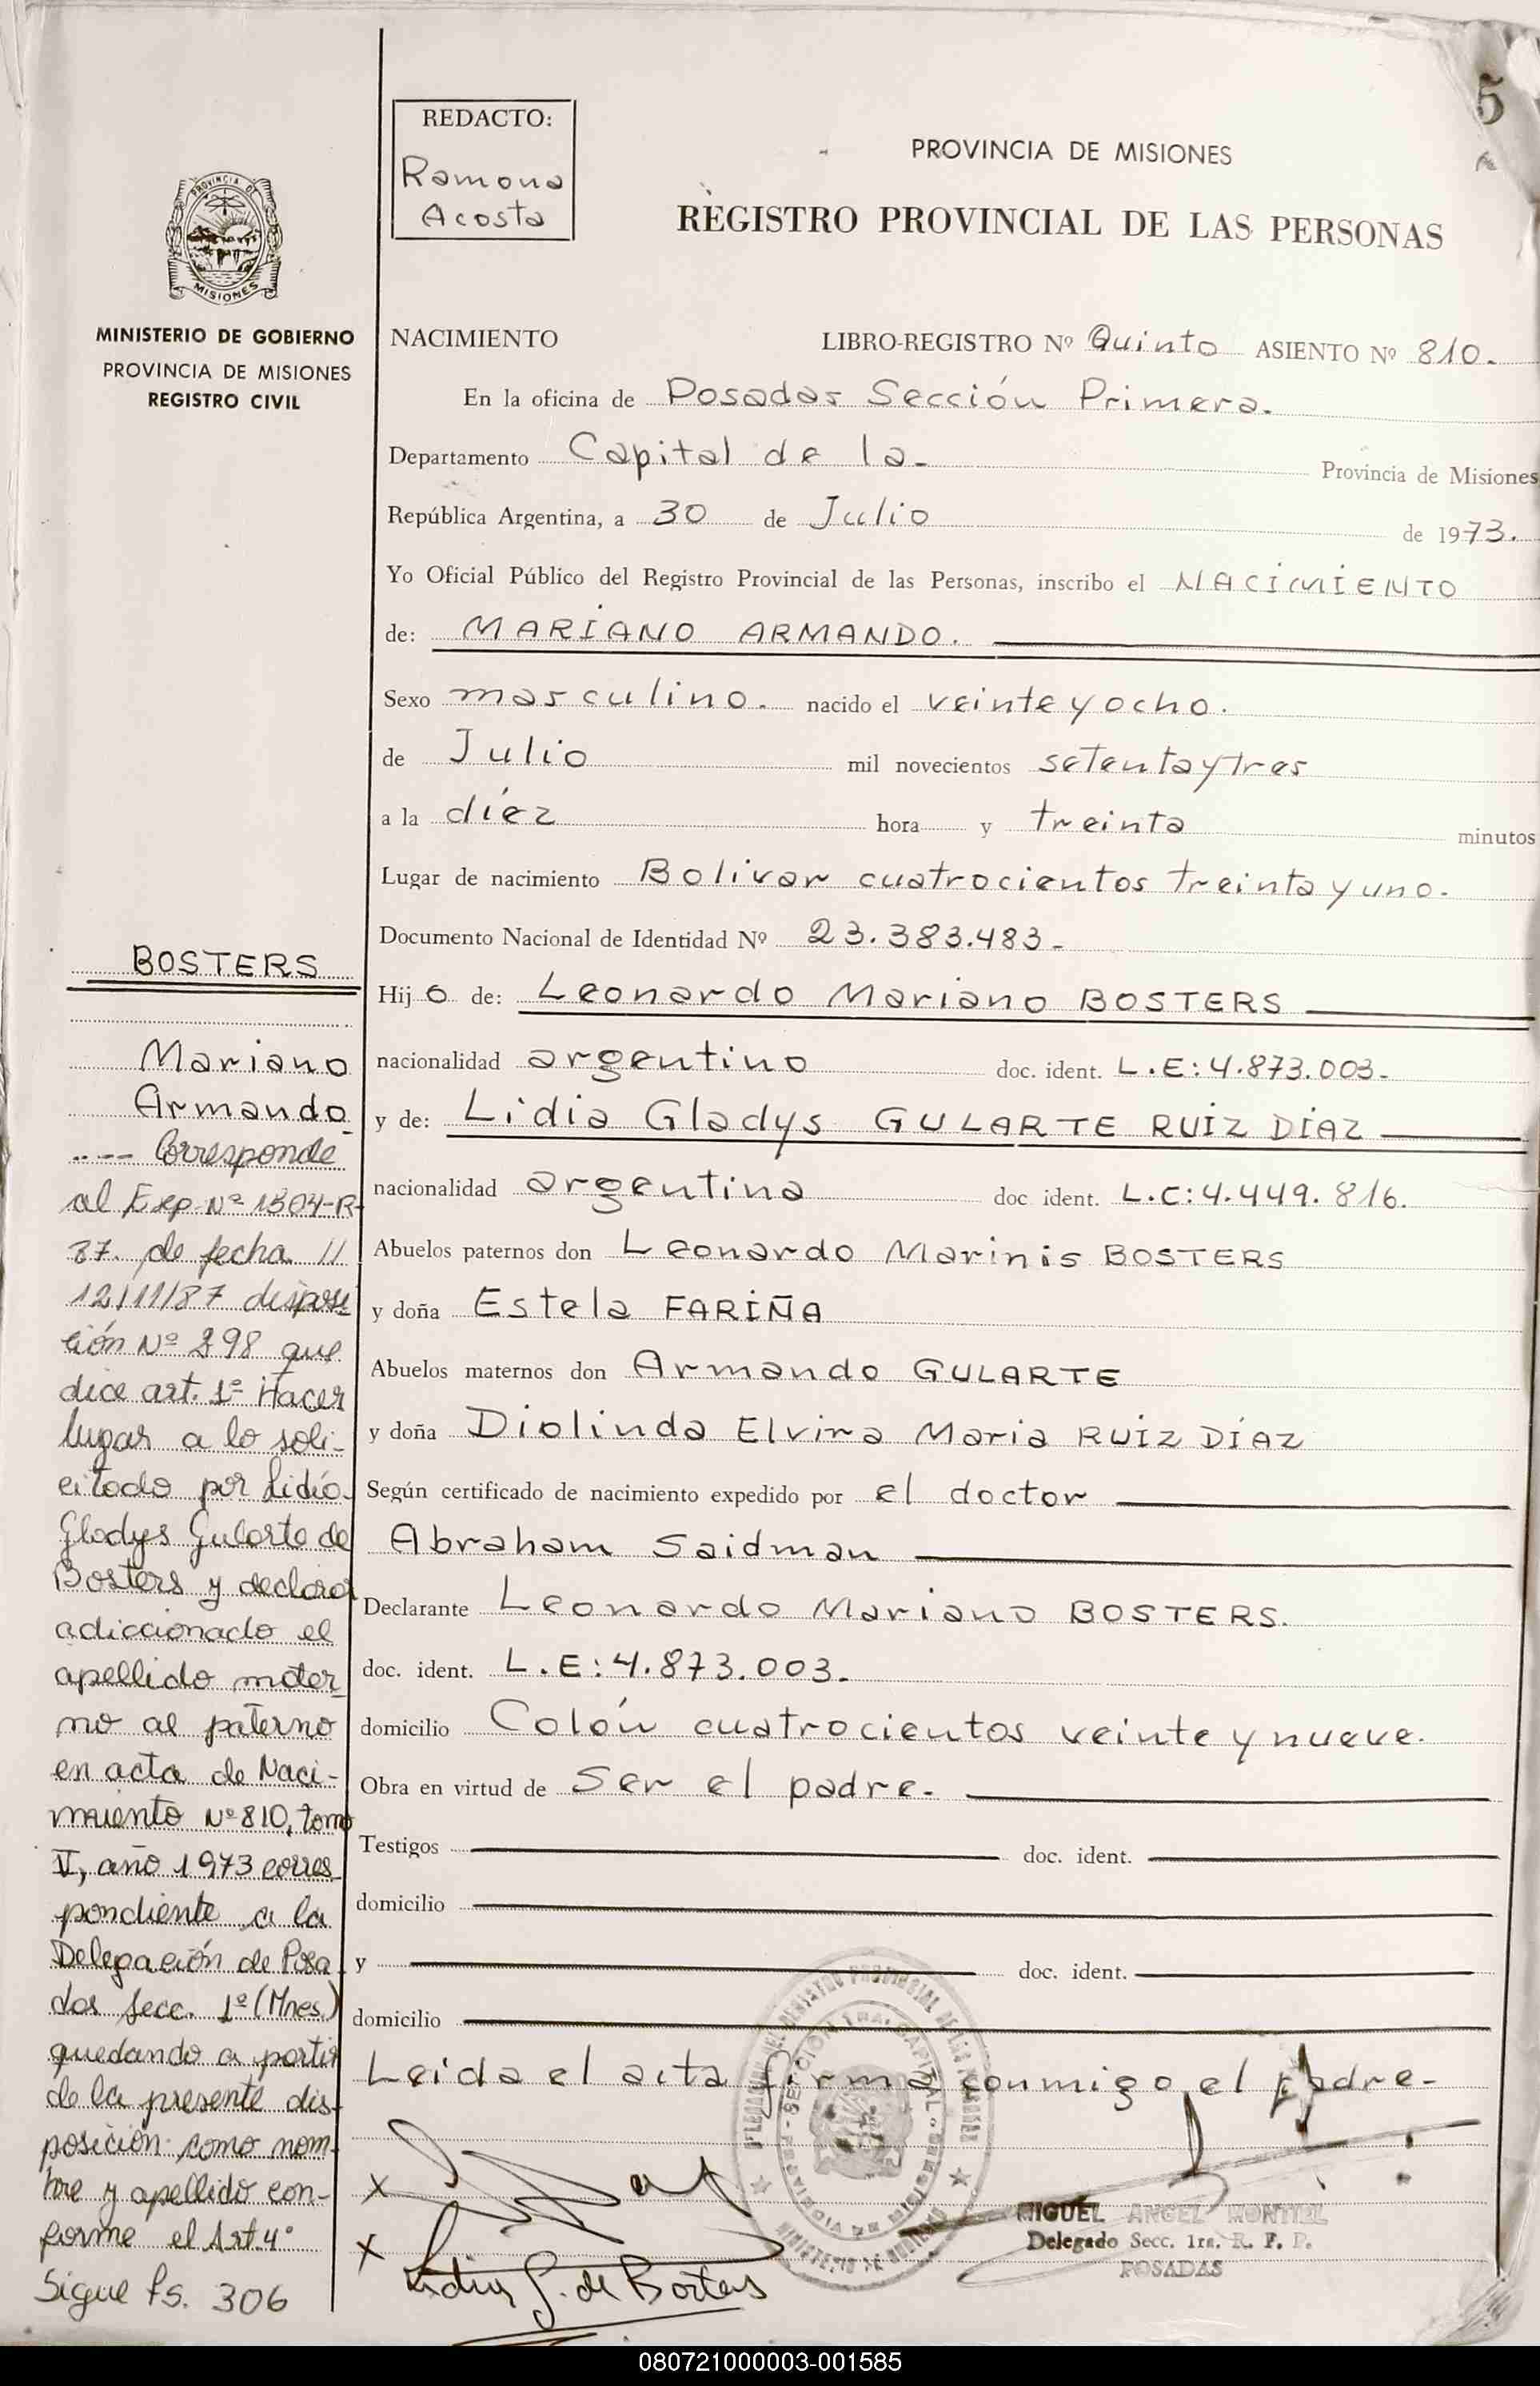 5
REDACTO:
Ramona
Acosta
PROVINCIA DE MISIONES
REGISTRO PROVINCIAL DE LAS PERSONAS
PROVINCIA DE
MISIONES
MINISTERIO DE GOBIERNO
PROVINCIA DE MISIONES
REGISTRO CIVIL
NACIMIENTO LIBRO-REGISTRO Nº Quinto ASIENTO Nº 810.
En la oficina de Posadas Sección Primera.
Departamento Capital de la- Provincia de Misiones
República Argentina, a 30 de Julio de 1973.
Yo Oficial Público del Registro Provincial de las Personas, inscribo el NACIMIENTO
de: MARIANO ARMANDO.
Sexo masculino. nacido el veinte y ocho.
de Julio mil novecientos setenta y tres
a la diez hora y treinta minutos
Lugar de nacimiento Bolivar cuatrocientos treinta y uno.
Documento Nacional de Identidad Nº 23.383.483-
Hijo de: Leonardo Mariano BOSTERS
nacionalidad argentino doc. ident. L.E: 4.873.003-
y de: Lidia Gladys GULARTE RUIZ DÍAZ
nacionalidad argentina doc ident. L.C: 4.449.816.
Abuelos paternos don Leonardo Marinis BOSTERS
y doña Estela FARIÑA
Abuelos maternos don Armando GULARTE
y doña Diolinda Elvira Maria RUIZ DÍAZ
Según certificado de nacimiento expedido por el doctor
Abraham Saidman
Declarante Leonardo Mariano BOSTERS.
doc. ident. L.E: 4.873.003.
domicilio Colón cuatrocientos veinte y nueve.
Obra en virtud de Ser el padre.
Testigos doc. ident.
domicilio
y doc. ident.
domicilio
Leida el acta firma conmigo el padre-
BOSTERS
Mariano
Armando
Corresponde
al Exp. Nº 1304-R-
87. de fecha
12/11/87 disposi
ción Nº 298 que
dice art. 1º Hacer
lugar a lo soli-
citado por Lidia
Gladys Gularte de
Bosters y declarar
adiccionado el
apellido mater
no al paterno
en acta de Naci-
miento Nº 810, tomo
V, año 1973 corres
pondiente a la
Delegación de Posa
das Secc. 1º (Mnes.)
quedando a partir
de la presente dis-
posición como nom-
bre y apellido con-
forme el Art. 4º
Sigue Fs. 306
x
x Lidia G. de Bosters
MIGUEL ANGEL MONTIEL
Delegado Secc. 1ra. R. P. P.
POSADAS
080721000003-001585